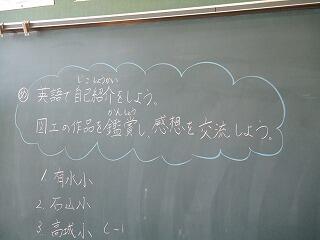 じこしょうかい
め 英語で自己紹介をしよう。
かんしょう
図工の作品を鑑賞し、感想を交流しよう。
1. 有水小
2. 石山小
3. 高城小 (-1